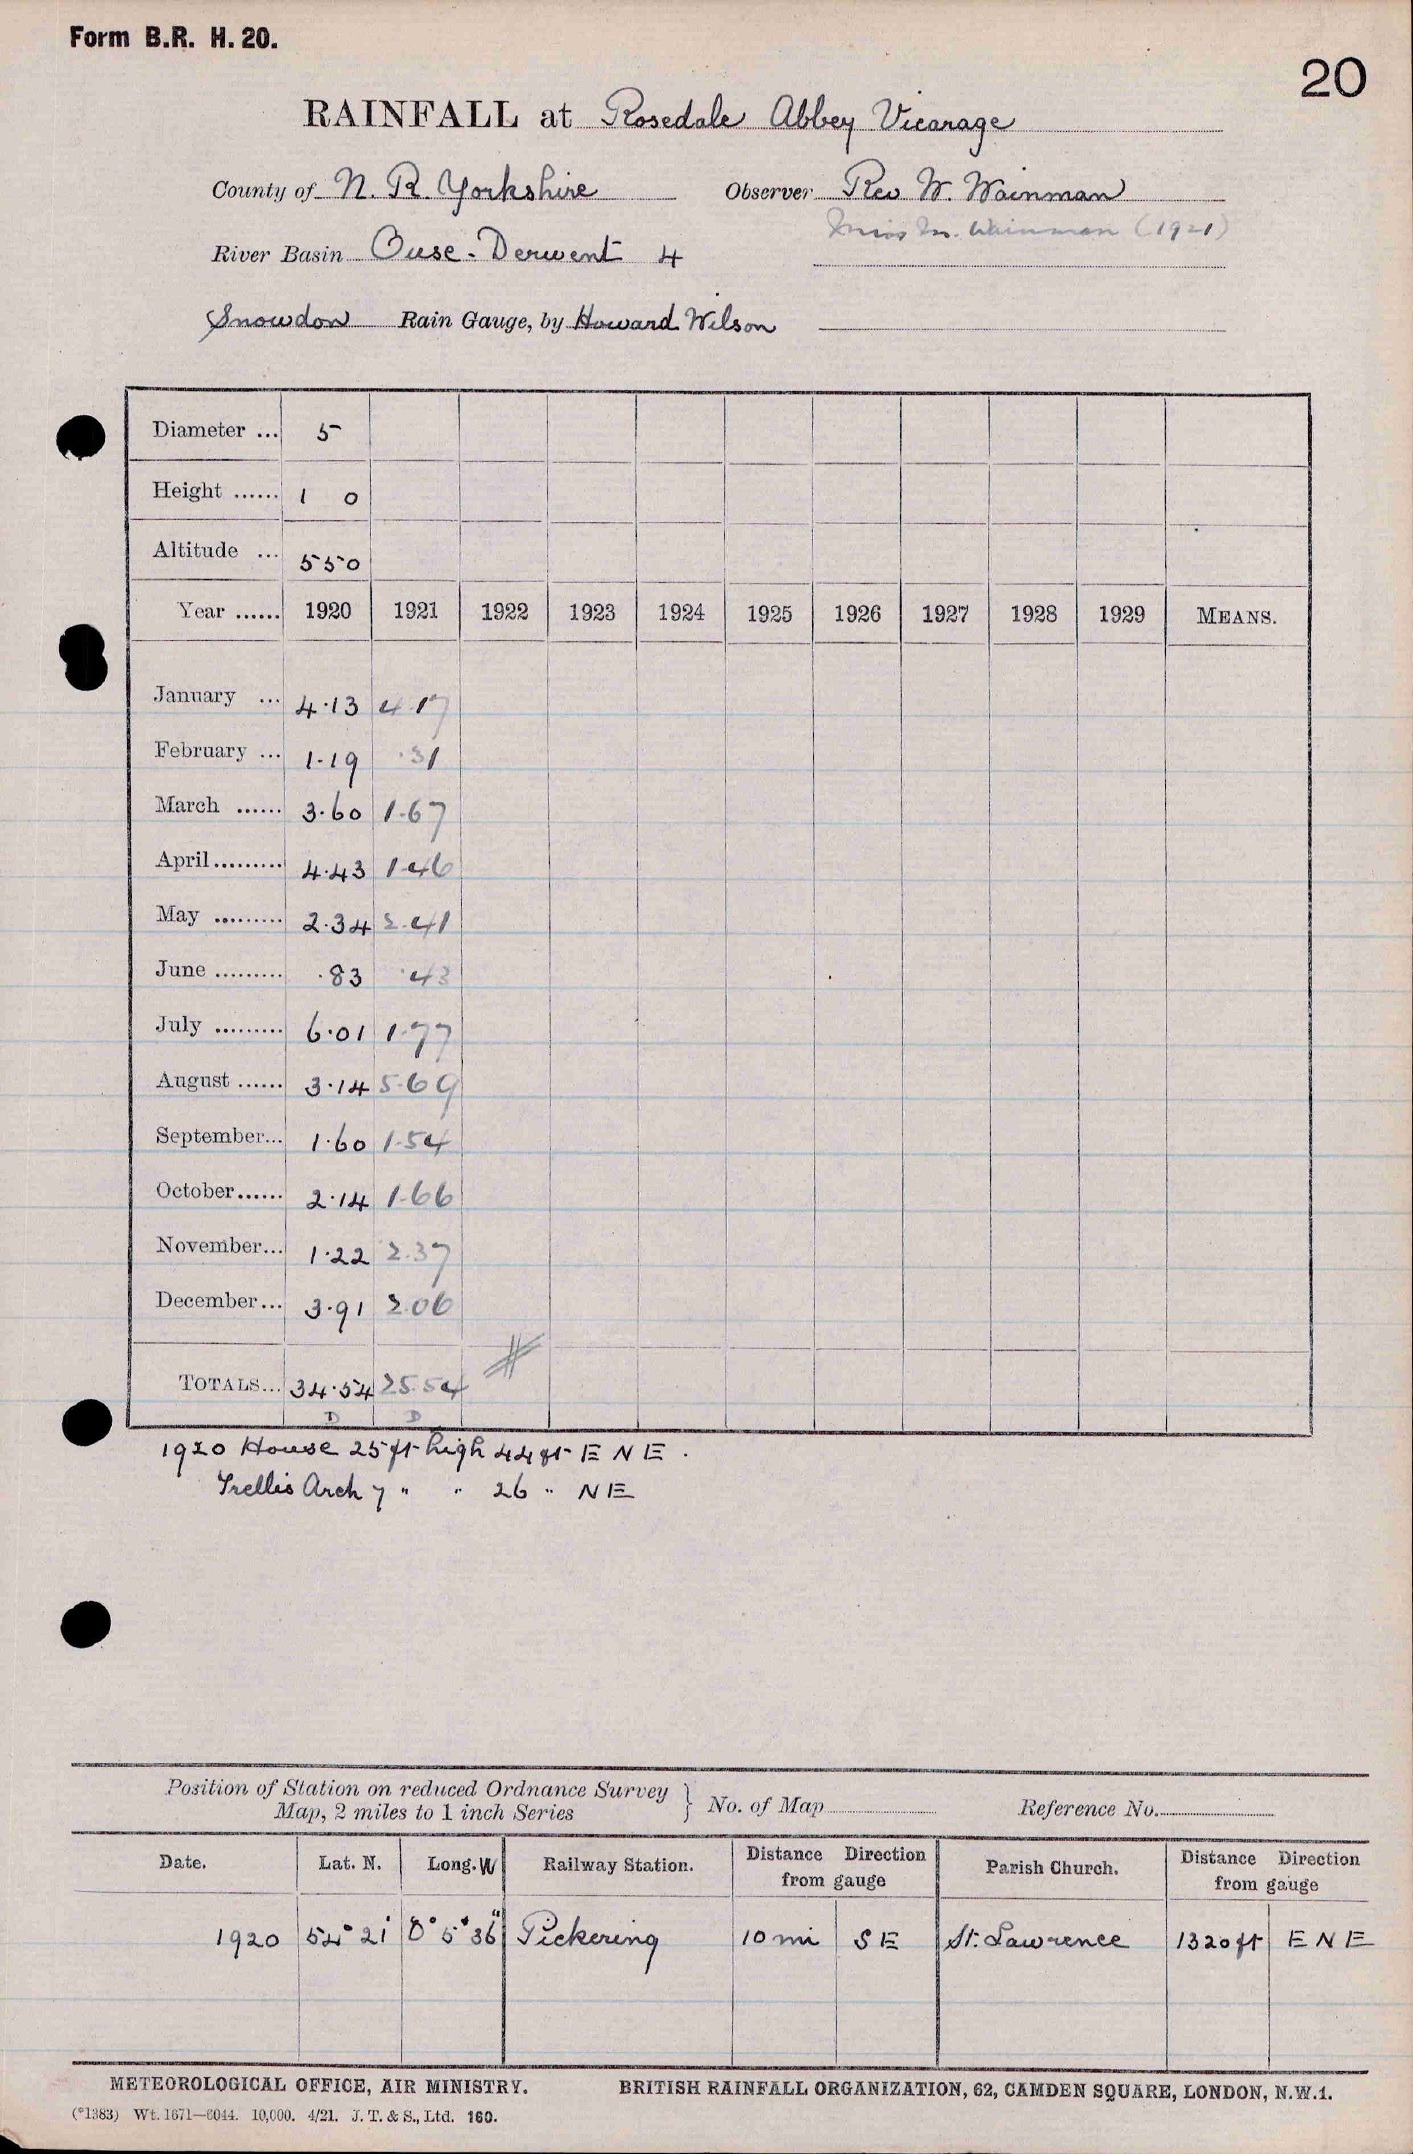 Form B.R. H. 20.
20
RAINFALL at Rosedale Abbey Vicarage
County of N. R. Yorkshire Observer Rev W. Wainman
Miss M. Wainman (1921)
River Basin Ouse - Derwent 4
Snowdon Rain Gauge, by Howard Wilson
Diameter ... 5
Height ...... 1 0
Altitude ... 550
Year ...... 1920 1921 1922 1923 1924 1925 1926 1927 1928 1929 MEANS.
January ... 4.13 4.17
February ... 1.19 .31
March ...... 3.60 1.67
April ......... 4.43 1.46
May ......... 2.34 2.41
June ......... .83 .43
July ......... 6.01 1.77
August ...... 3.14 5.69
September... 1.60 1.54
October...... 2.14 1.66
November... 1.22 2.37
December... 3.91 2.06
TOTALS... 34.54 25.54
D D
1920 House 25 ft high 44 ft E N E .
Trellis Arch 7 " " 26 " N E
Position of Station on reduced Ordnance Survey
Map, 2 miles to 1 inch Series } No. of Map Reference No.
Date. Lat. N. Long. W Railway Station. Distance Direction from gauge Parish Church. Distance Direction from gauge
1920 54° 21' 0° 5' 36" Pickering 10 mi S E St. Lawrence 1320 ft E N E
METEOROLOGICAL OFFICE, AIR MINISTRY. BRITISH RAINFALL ORGANIZATION, 62, CAMDEN SQUARE, LONDON, N.W.1.
(*1383) Wt. 1671—6044. 10,000. 4/21. J. T. & S., Ltd. 160.